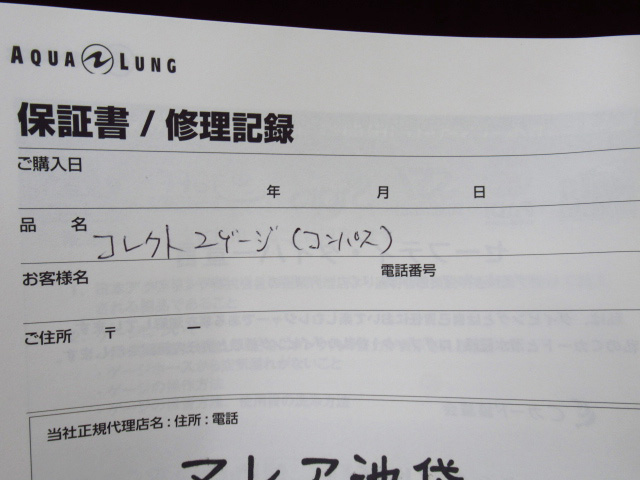 AQUA LUNG
保証書 / 修理記録
ご購入日
年 月 日
品 名 コレクト 2ゲージ (コンパス)
お客様名 電話番号
ご住所 〒 ー
当社正規代理店名 : 住所 : 電話
マレア池袋